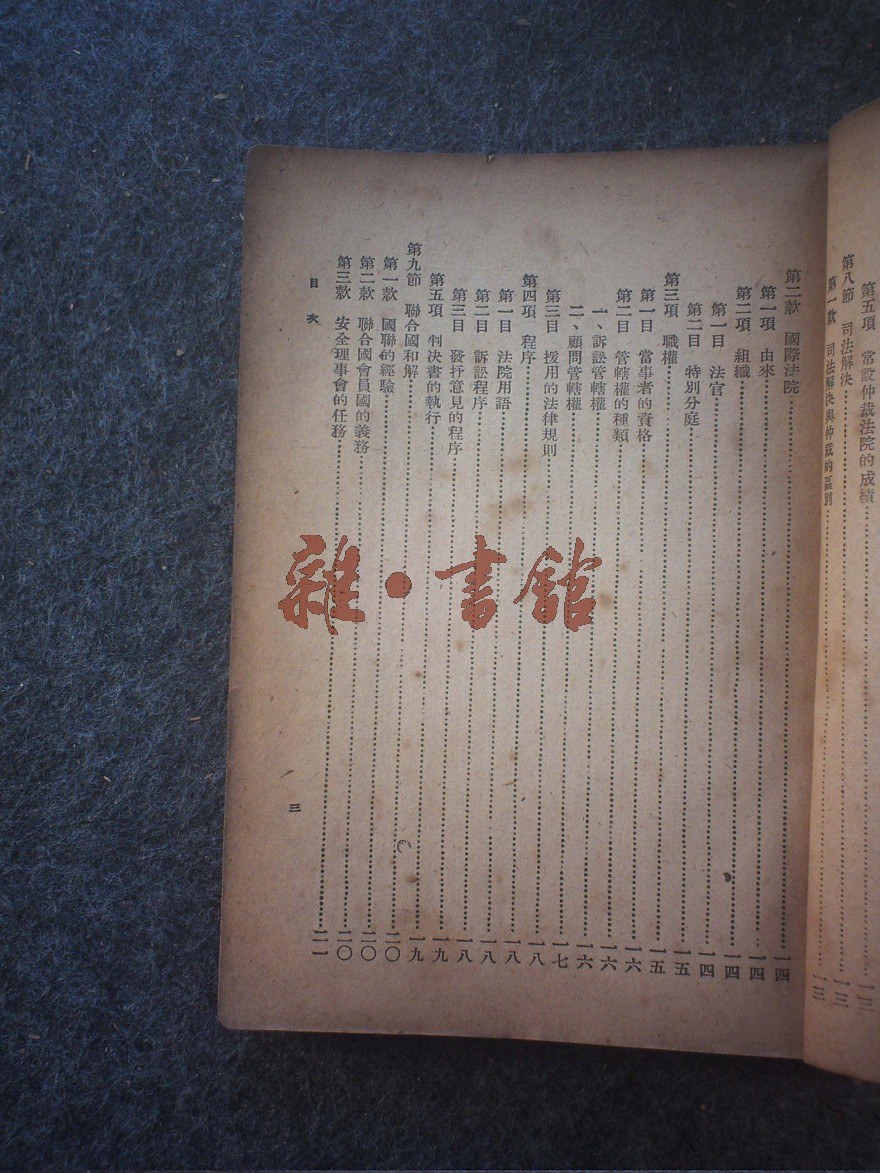 第五項 常設仲裁法院的成績……一三
第八節 司法解決……一三
第一款 司法解決與仲裁的區別……一三
第二款 國際法院……一四
第一項 由來……一四
第二項 組織……一四
第一目 法官……一四
第二目 特別分庭……一五
第三項 職權……一五
第一目 當事者的資格……一六
第二目 管轄權的種類……一六
一、訴訟管轄權……一六
二、顧問管轄權……一七
第三目 援用的法律規則……一八
第四項 程序……一八
第一目 法院用語……一八
第二目 訴訟程序……一八
第三目 發抒意見的程序……一九
第五項 判決書的執行……一九
第九節 聯合國和解……二〇
第一款 國聯的經驗……二〇
第二款 聯合國會員國的義務……二〇
第三款 安全理事會的任務……二一
目次
三
雜·書館